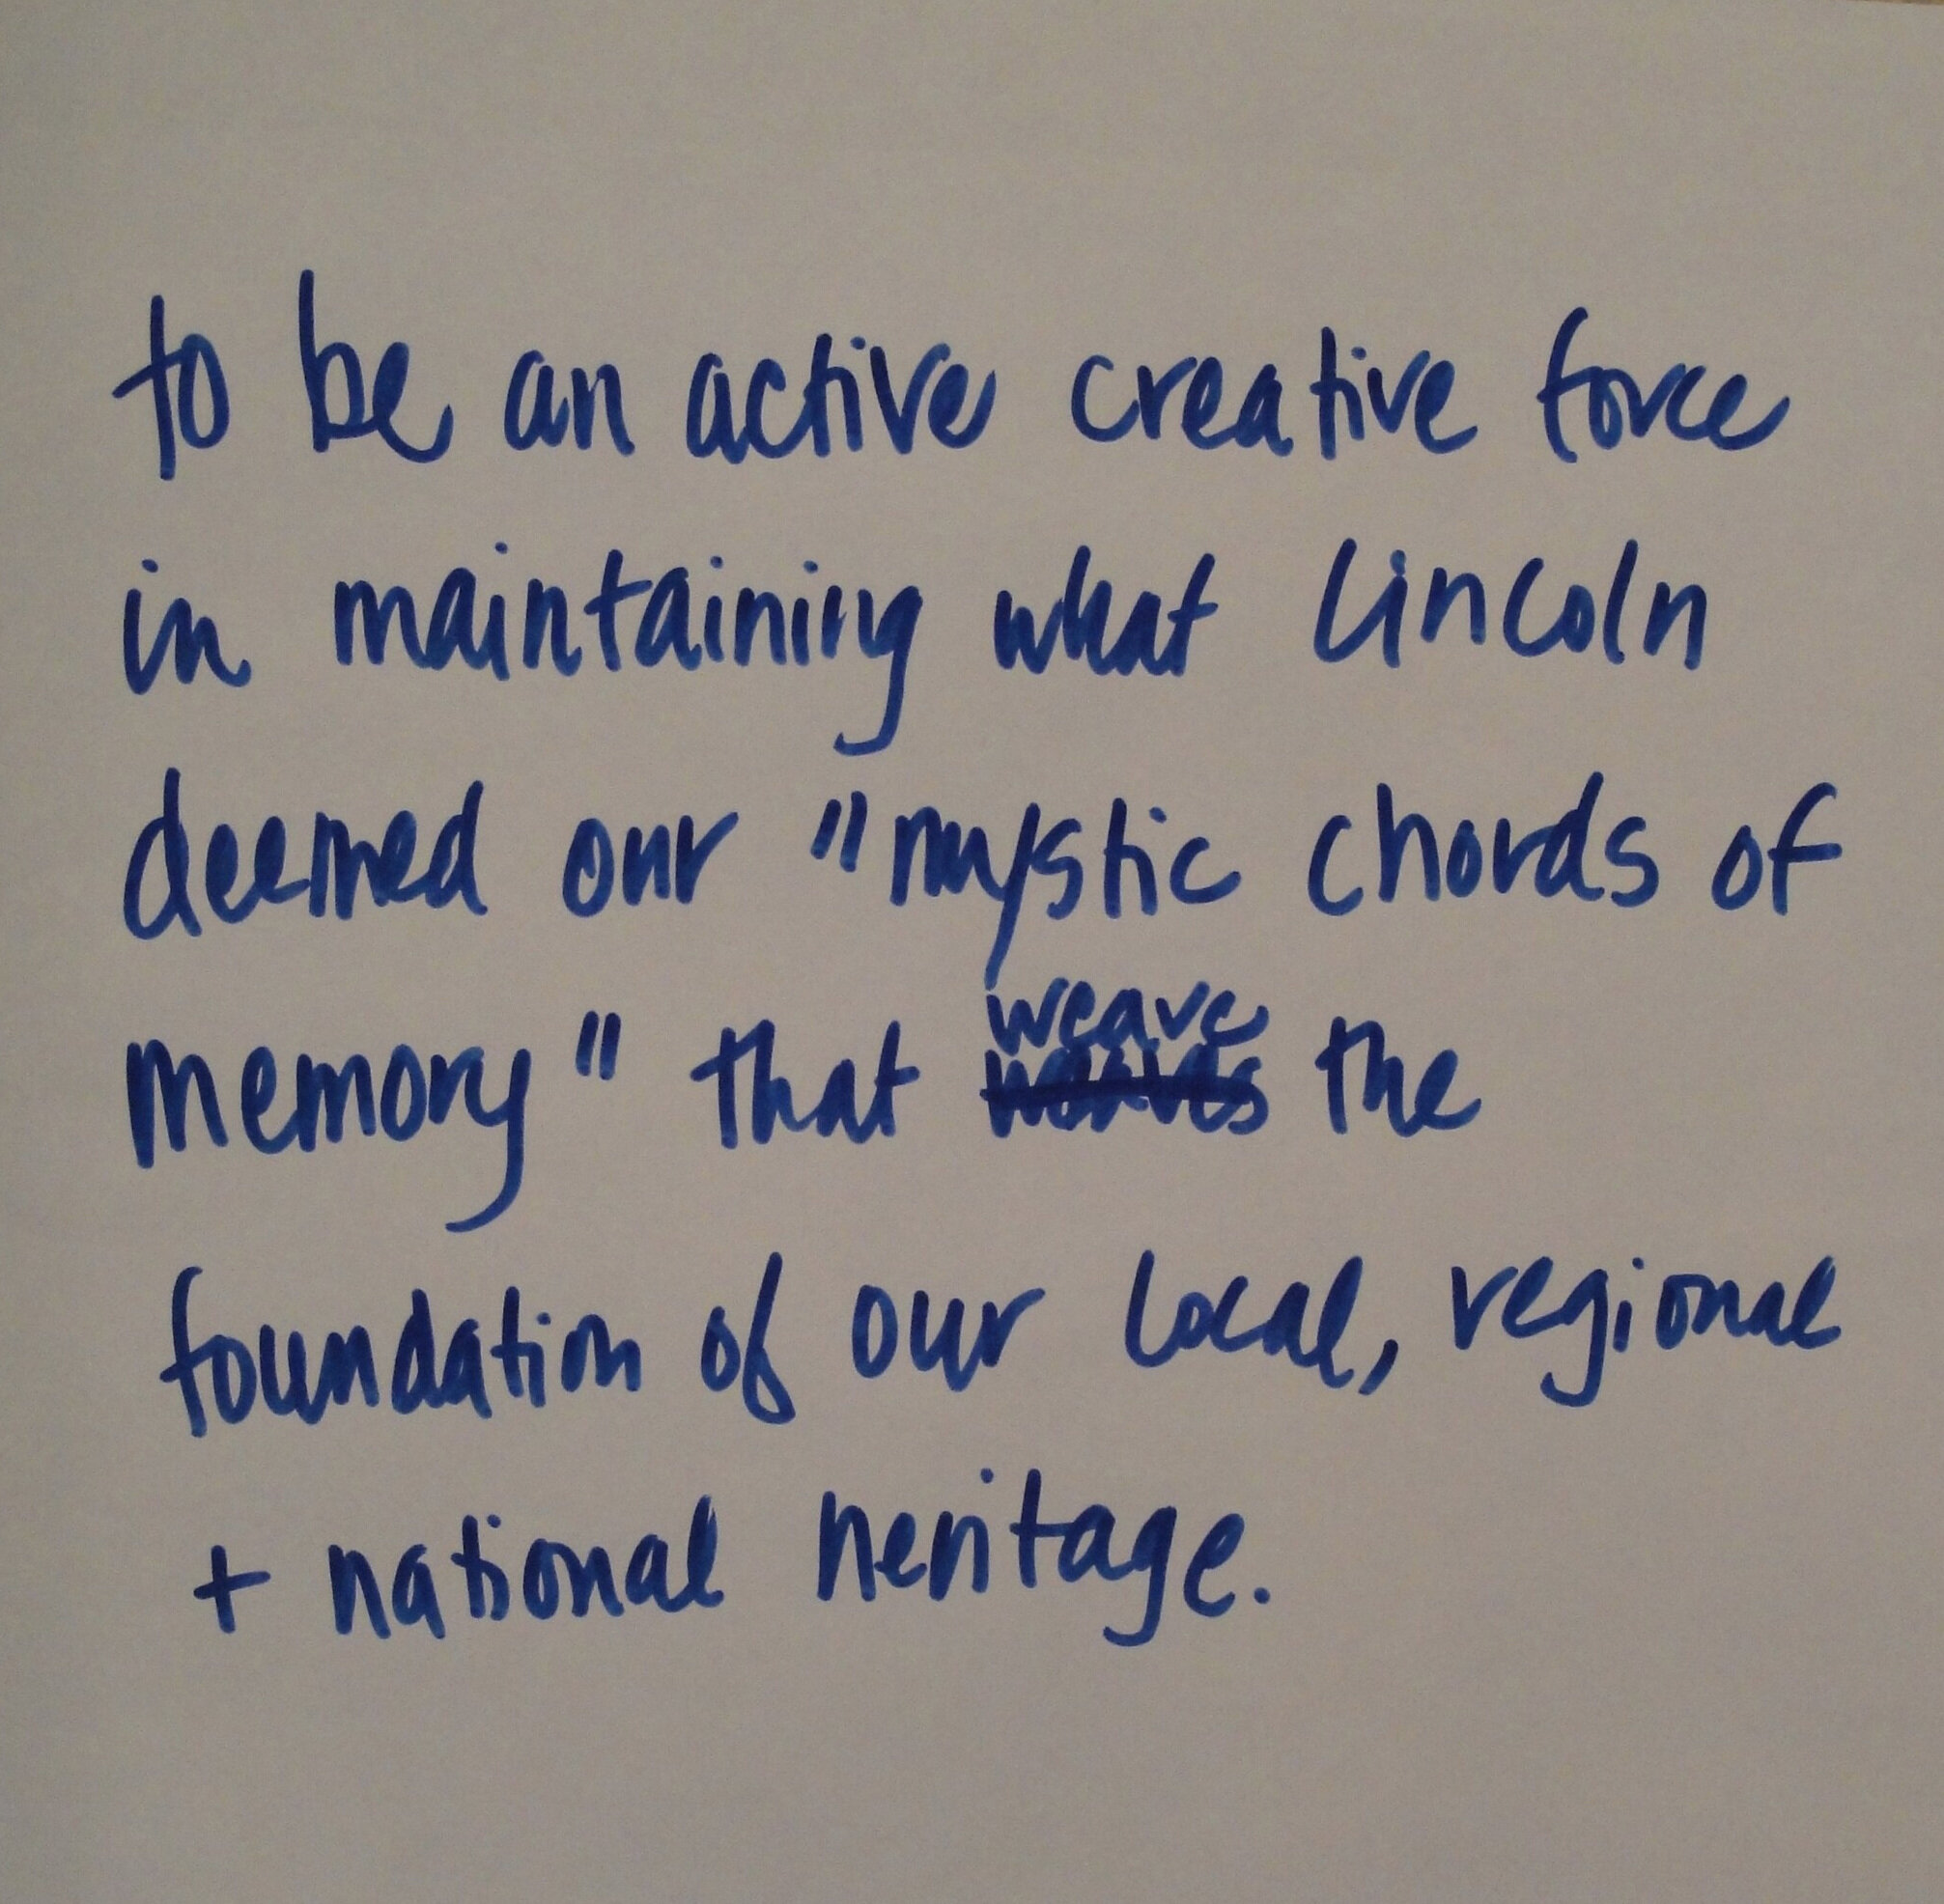 to be an active creative force
in maintaining what Lincoln
deemed our "mystic chords of
memory" that weave the
foundation of our local, regional
+ national heritage.